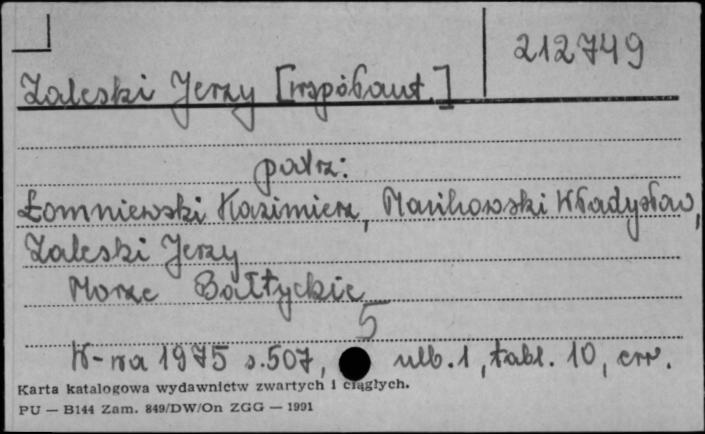 212749
Zaleski Jerzy [współaut.]
patrz:
Łomniewski Kazimierz, Mańkowski Władysław,
Zaleski Jerzy
Morze Bałtyckie
5
W-wa 1975 s.507, ulb.1, tabl. 10, err.
Karta katalogowa wydawnictw zwartych i ciągłych.
PU — B144 Zam. 849/DW/On ZGG — 1991